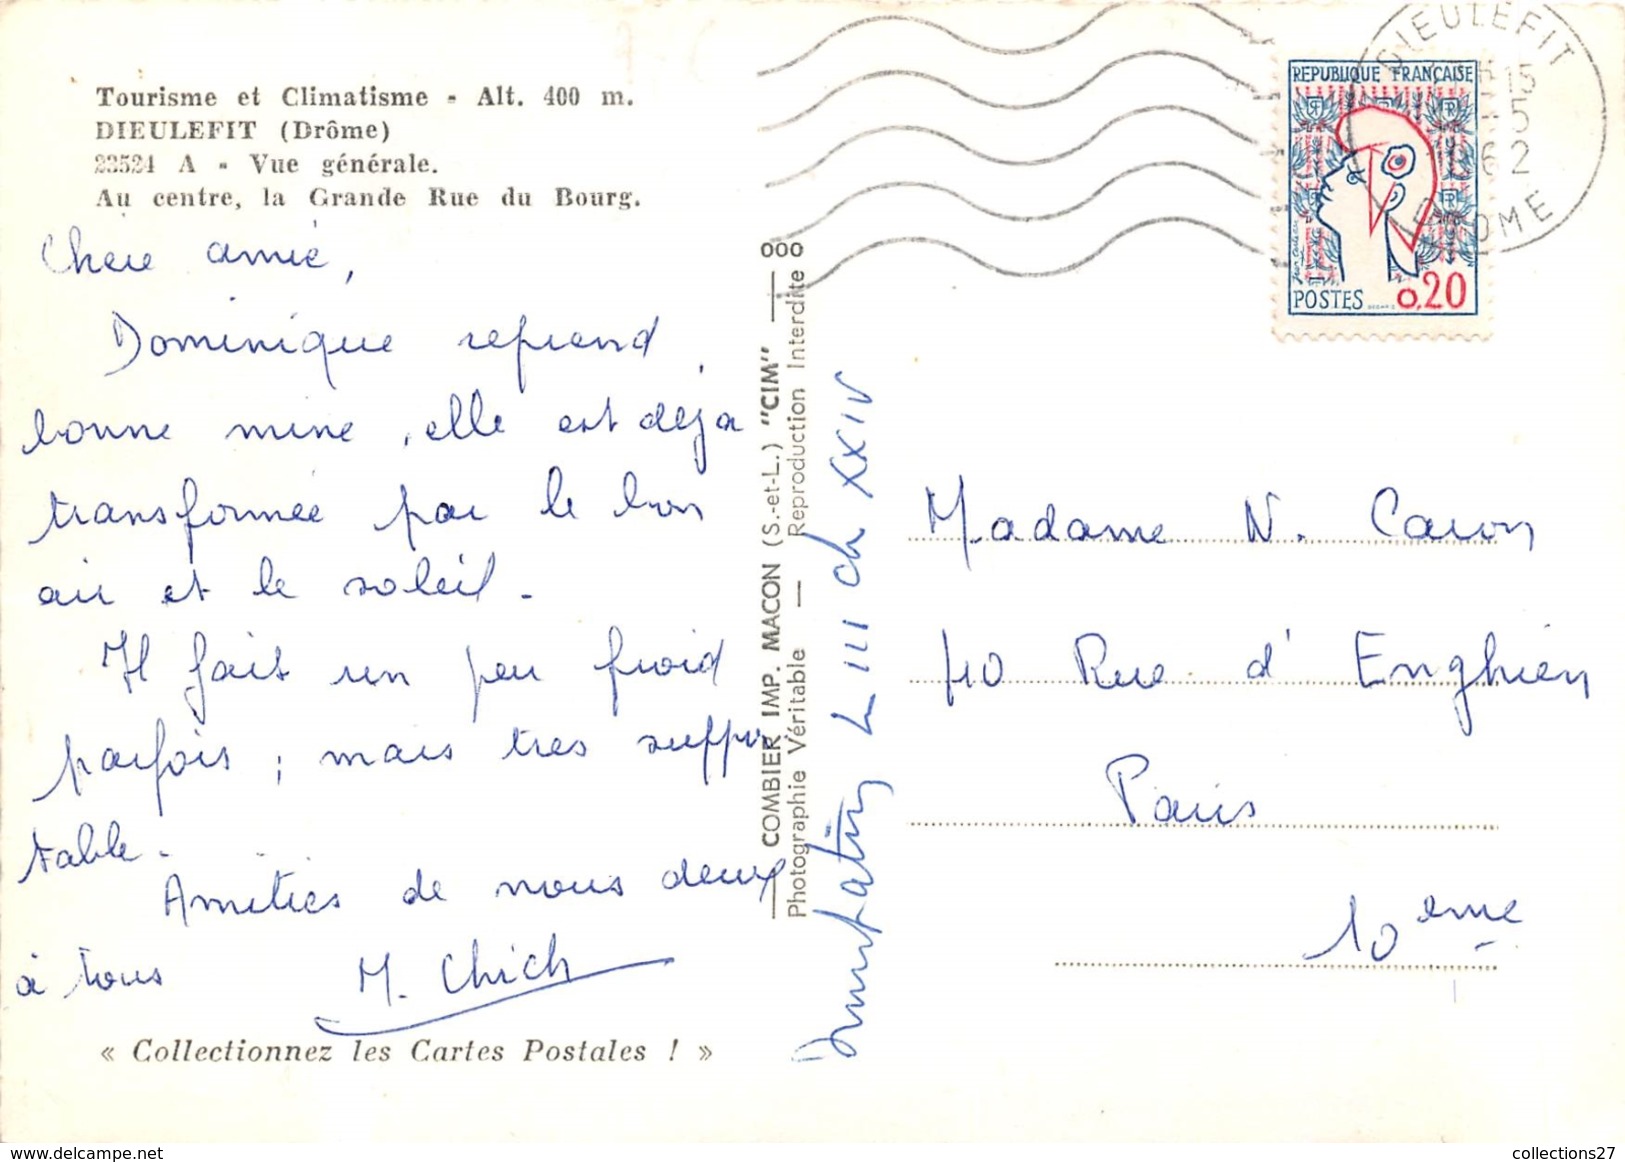 Tourisme et Climatisme - Alt. 400 m.
DIEULEFIT (Drôme)
23524 A - Vue générale.
Au centre, la Grande Rue du Bourg.
Chere amie,
Dominique reprend
bonne mine, elle est déja
transformée par le bon
air et le soleil.
Il fait un peu froid
parfois ; mais tres suppor
table.
Amities de nous deux
à tous
M. Chich
« Collectionnez les Cartes Postales ! »
COMBIER IMP. MACON (S.-et-L.) "CIM" — OOO
Photographie Véritable — Reproduction Interdite
L III ch XXIV
DIEULEFIT
15
5
1962
DROME
REPUBLIQUE FRANÇAISE
POSTES 0,20
Madame N. Caron
40 Rue d'Enghien
Paris
10 eme
collections27